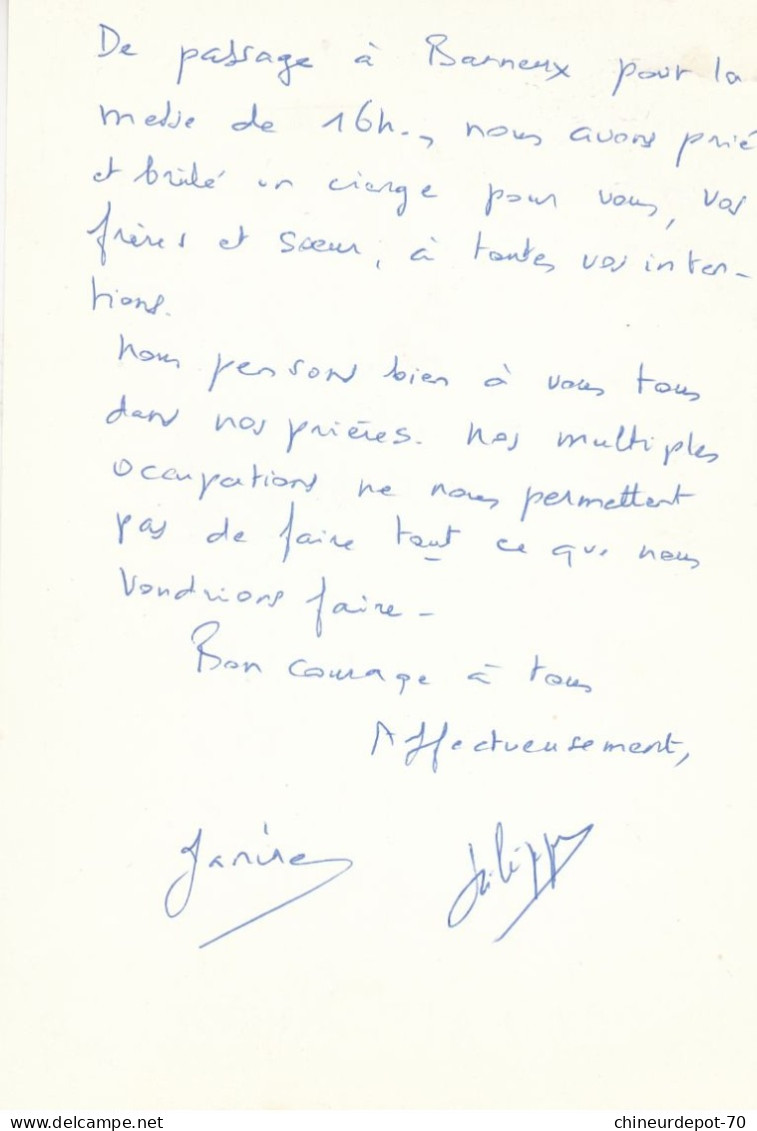 De passage à Banneux pour la
messe de 16h., nous avons prié
et brûlé un cierge pour vous, vos
frères et sœur, à toutes vos inten-
tions.
Nous pensons bien à vous tous
dans nos prières. Nos multiples
occupations ne nous permettent
pas de faire tout ce que nous
voudrions faire -
Bon courage à tous
Affectueusement,
Janine Philippe
chineurdepot-70